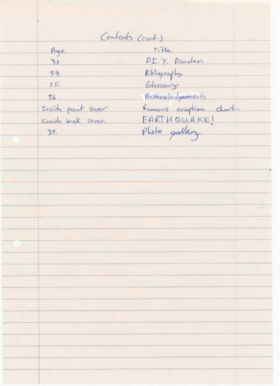 Contents (cont.)
Page Title
Bibliography
Glossary
36 Acknowledgements
Inside front cover Famous eruption chart
Inside back cover EARTHQUAKE!
37 Photo gallery